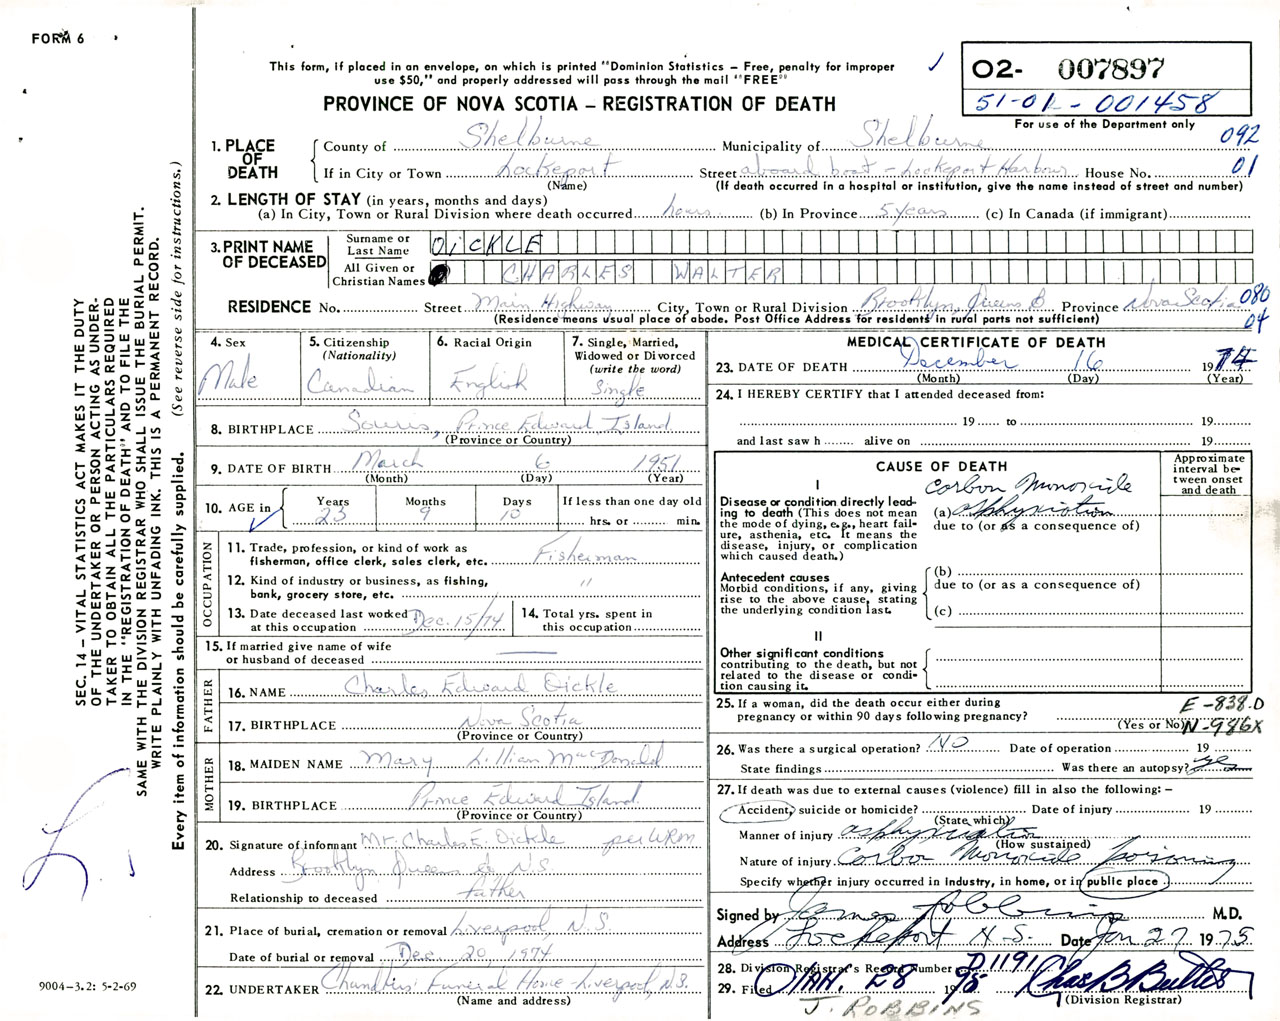 FORM 6
This form, if placed in an envelope, on which is printed "Dominion Statistics – Free, penalty for improper
use $50," and properly addressed will pass through the mail "FREE"
PROVINCE OF NOVA SCOTIA – REGISTRATION OF DEATH
02- 007897
51-01- 001458
For use of the Department only
092
01
1. PLACE OF DEATH
County of Shelburne Municipality of Shelburne
If in City or Town Lockeport Street aboard boat - Lockeport Harbour House No.
(Name) (If death occurred in a hospital or institution, give the name instead of street and number)
2. LENGTH OF STAY (in years, months and days)
(a) In City, Town or Rural Division where death occurred hours (b) In Province 5 years (c) In Canada (if immigrant)
3. PRINT NAME OF DECEASED
Surname or Last Name DICKLE
All Given or Christian Names CHARLES WALTER
RESIDENCE No. Street Main Highway City, Town or Rural Division Brooklyn, Queens Co Province Nova Scotia 080
(Residence means usual place of abode. Post Office Address for residents in rural parts not sufficient) 04
4. Sex
Male
5. Citizenship
(Nationality)
Canadian
6. Racial Origin
English
7. Single, Married,
Widowed or Divorced
(write the word)
Single
8. BIRTHPLACE Souris, Prince Edward Island
(Province or Country)
9. DATE OF BIRTH March 6 1951
(Month) (Day) (Year)
10. AGE in
Years Months Days If less than one day old
23 9 10 hrs. or min.
OCCUPATION
11. Trade, profession, or kind of work as
fisherman, office clerk, sales clerk, etc. Fisherman
12. Kind of industry or business, as fishing,
bank, grocery store, etc. "
13. Date deceased last worked
at this occupation Dec. 15/74
14. Total yrs. spent in
this occupation
15. If married give name of wife
or husband of deceased
FATHER
16. NAME Charles Edward Dickle
17. BIRTHPLACE Nova Scotia
(Province or Country)
MOTHER
18. MAIDEN NAME Mary Lillian MacDonald
19. BIRTHPLACE Prince Edward Island
(Province or Country)
20. Signature of informant Mr. Charles E. Dickle per WRM
Address Brooklyn Queens Co N.S
Relationship to deceased father
21. Place of burial, cremation or removal Liverpool, N.S.
Date of burial or removal Dec. 20, 1974
22. UNDERTAKER Chandlers Funeral Home - Liverpool, N.S.
(Name and address)
MEDICAL CERTIFICATE OF DEATH
23. DATE OF DEATH December 16 1974
(Month) (Day) (Year)
24. I HEREBY CERTIFY that I attended deceased from:
19 to 19
and last saw h alive on 19
CAUSE OF DEATH
Approximate
interval be-
tween onset
and death
I
Disease or condition directly lead-
ing to death (This does not mean
the mode of dying, e.g., heart fail-
ure, asthenia, etc. It means the
disease, injury, or complication
which caused death.)
Carbon Monoxide
(a) asphyxiation
due to (or as a consequence of)
Antecedent causes
Morbid conditions, if any, giving
rise to the above cause, stating
the underlying condition last.
(b)
due to (or as a consequence of)
(c)
II
Other significant conditions
contributing to the death, but not
related to the disease or condi-
tion causing it.
25. If a woman, did the death occur either during
pregnancy or within 90 days following pregnancy?
(Yes or No)
E-838.0
N-986X
26. Was there a surgical operation? NO Date of operation 19
State findings Was there an autopsy? yes
27. If death was due to external causes (violence) fill in also the following: –
Accident, suicide or homicide? Date of injury 19
(State which)
Manner of injury asphyxiation
(How sustained)
Nature of injury Carbon Monoxide poisoning
Specify whether injury occurred in industry, in home, or in public place
Signed by James Robbins M.D.
Address Lockeport N.S. Date Jan 27 1975
28. Division Registrar's Record Number D1191
29. Filed JAN. 28 Chas B Butler
(Division Registrar)
J. ROBBINS
SEC. 14 – VITAL STATISTICS ACT MAKES IT THE DUTY
OF THE UNDERTAKER OR PERSON ACTING AS UNDER-
TAKER TO OBTAIN ALL THE PARTICULARS REQUIRED
IN THE "REGISTRATION OF DEATH" AND TO FILE THE
SAME WITH THE DIVISION REGISTRAR WHO SHALL ISSUE THE BURIAL PERMIT.
WRITE PLAINLY WITH UNFADING INK. THIS IS A PERMANENT RECORD.
Every item of information should be carefully supplied. (See reverse side for instructions.)
9004-3.2: 5-2-69